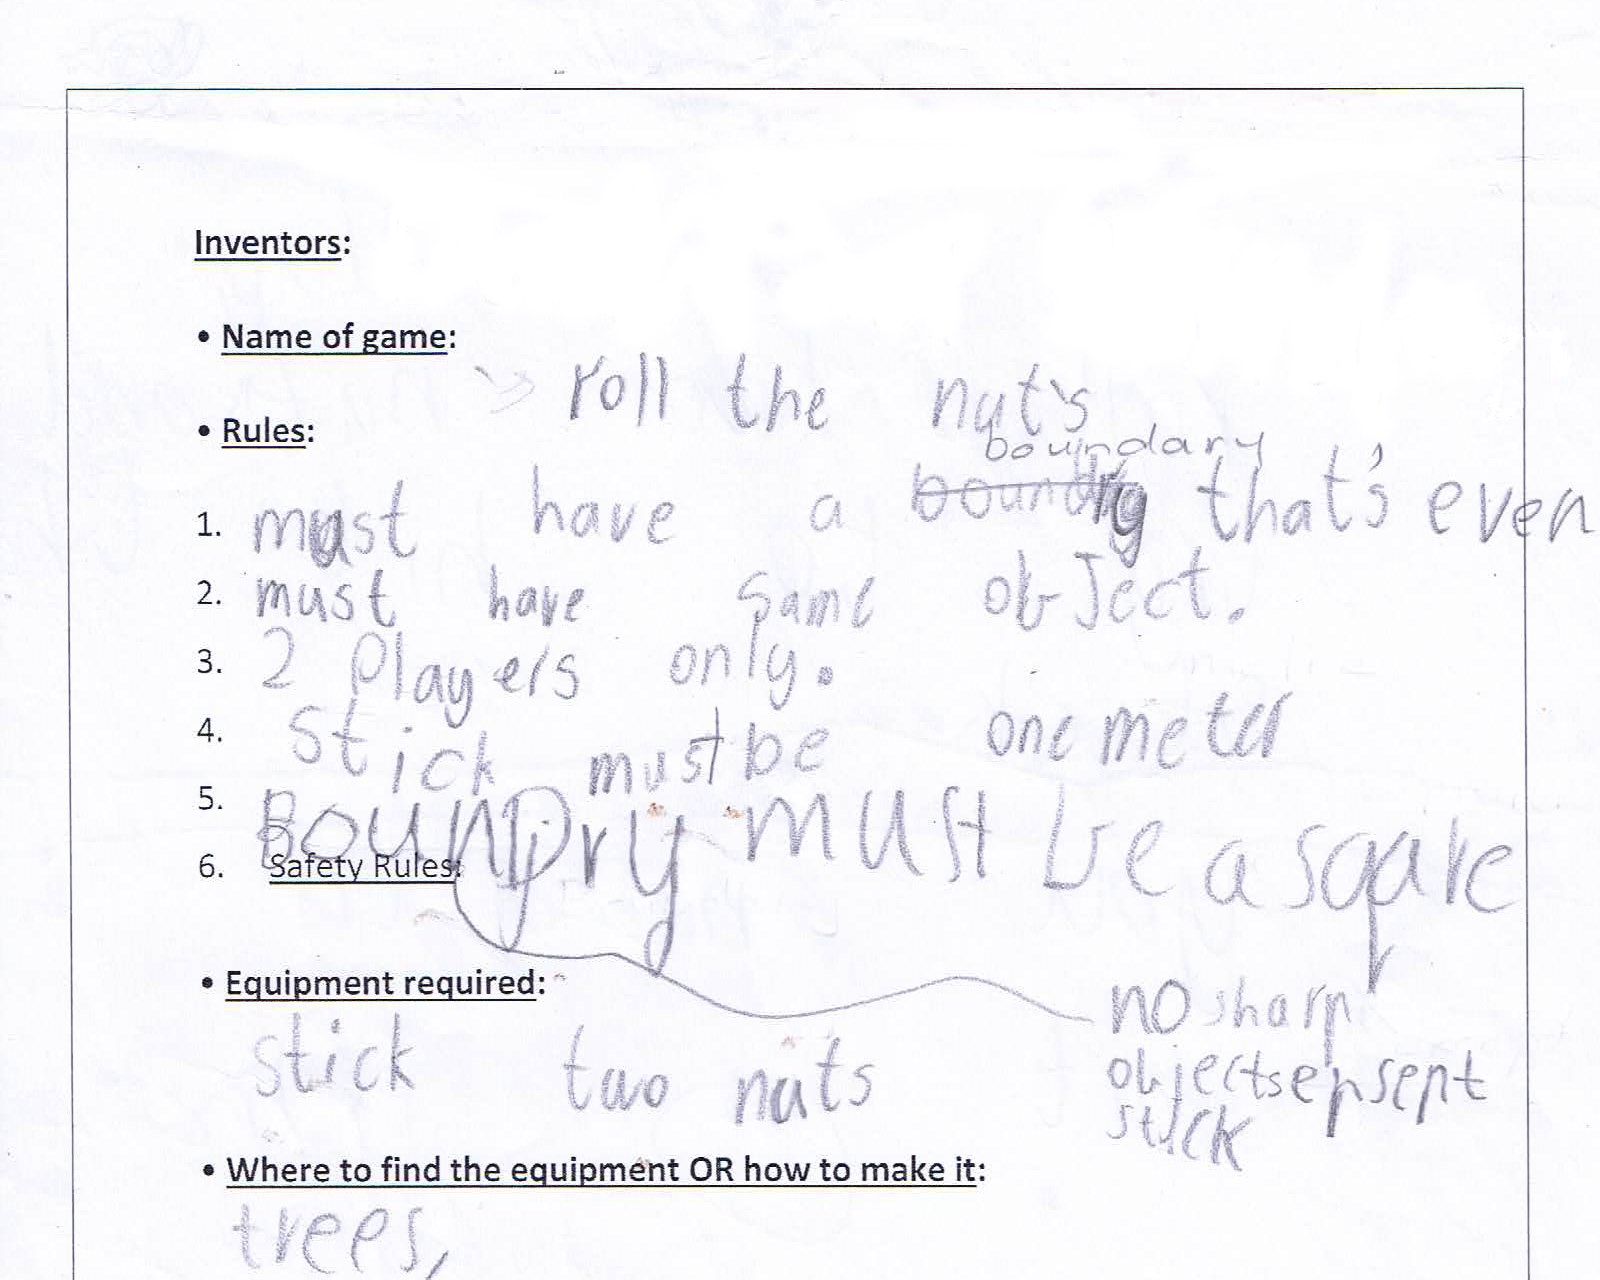 Inventors:
• Name of game:
roll the nut's
• Rules:
boundary
1. must have a boundry that's even
2. must have same obJect.
3. 2 Players only.
4. Stick must be one meter
5. BounDry must be a sqare
6. Safety Rules:
• Equipment required:
no sharp
objects epsept
stick
stick two nuts
• Where to find the equipment OR how to make it:
trees,